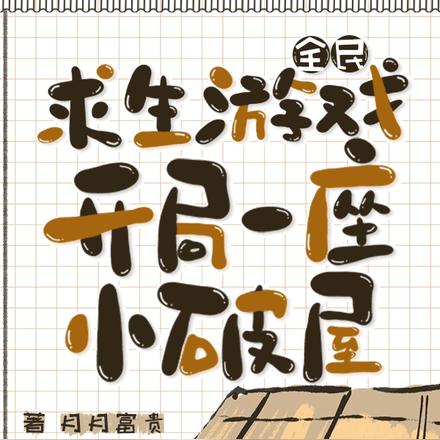 全民
求生游戏
开局一座
小破屋
著 月月富贵